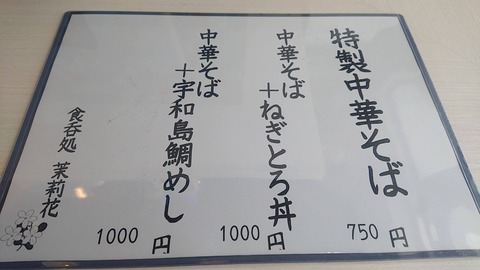 特製中華そば
750円
中華そば
＋ねぎとろ丼
1000円
中華そば
＋宇和島鯛めし
1000円
食呑処 茉莉花